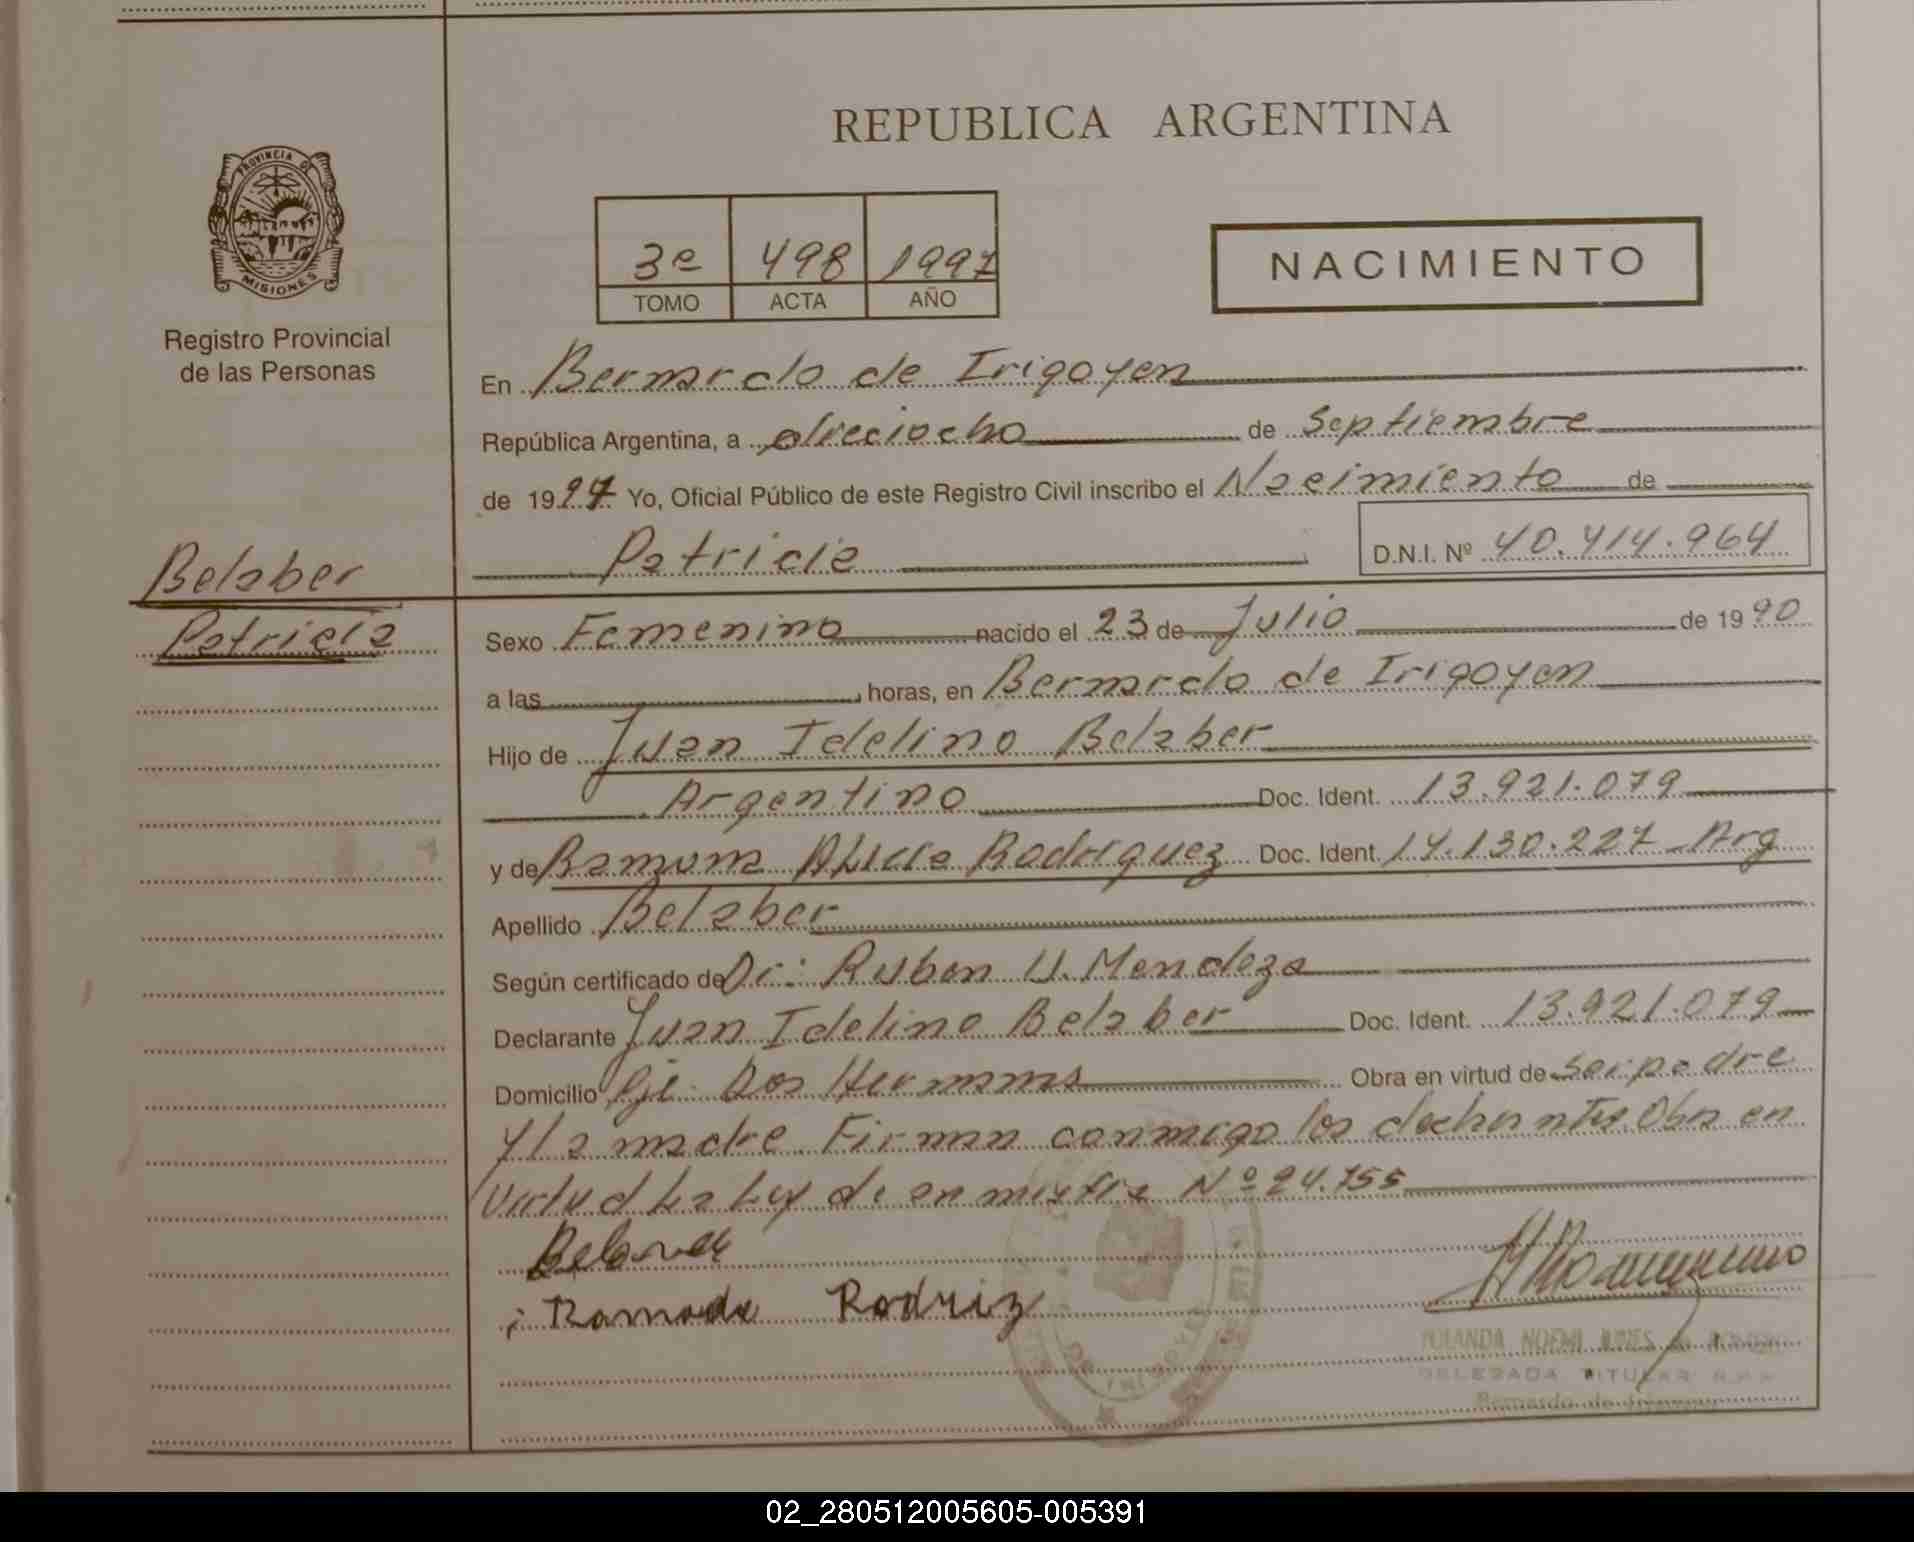 REPUBLICA ARGENTINA
PROVINCIA DE
MISIONES
Registro Provincial
de las Personas
3e 498 1997
TOMO ACTA AÑO
NACIMIENTO
En Bernardo de Irigoyen
República Argentina, a dieciocho de Septiembre
de 1997 Yo, Oficial Público de este Registro Civil inscribo el Nacimiento de
Patricia D.N.I. Nº 40.414.964
Belaber
Patricia
Sexo Femenino nacido el 23 de Julio de 1990
a las horas, en Bernardo de Irigoyen
Hijo de Juan Idelino Belaber
Argentino Doc. Ident. 13.921.079
y de Ramona Alicia Rodriguez Doc. Ident. 14.130.227 Arg
Apellido Belaber
Según certificado de Dr: Ruben U. Mendoza
Declarante Juan Idelino Belaber Doc. Ident. 13.921.079
Domicilio Pje. Dos Hermanas Obra en virtud de ser padre
y la madre Firman conmigo los declarantes. Obra en
virtud La Ley de amnistia Nº 24.755
Ramada Rodriz
YOLANDA NOEMI
DELEGADA TITULAR R.P.P.
Bernardo de Irigoyen
02_280512005605-005391